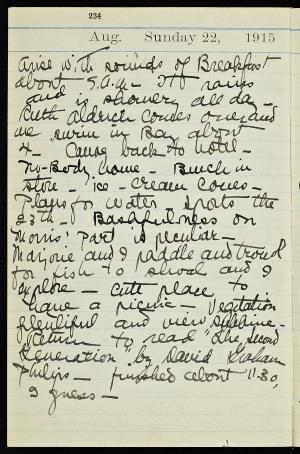 234
Aug. Sunday 22, 1915
Arise with sounds of Breakfast
about - 9. A.M - It rains
and is showery all day -
Ruth Aldrich comes over and
we swim in Bay about
4 - Came back to hotel -
No-Body home - Bunch in
store - Ice - cream cones -
Plans for water sports the
28th - Bashfulness on
Morris' Part is peculiar -
Marjorie and I paddle and
for fish to shoal and I
explore - Cute place to
have a picnic - Vegetation
plentiful and view sublime -
Return to read "The Second
Generation" by David Graham
Philips - finished about 11:30,
I guess -